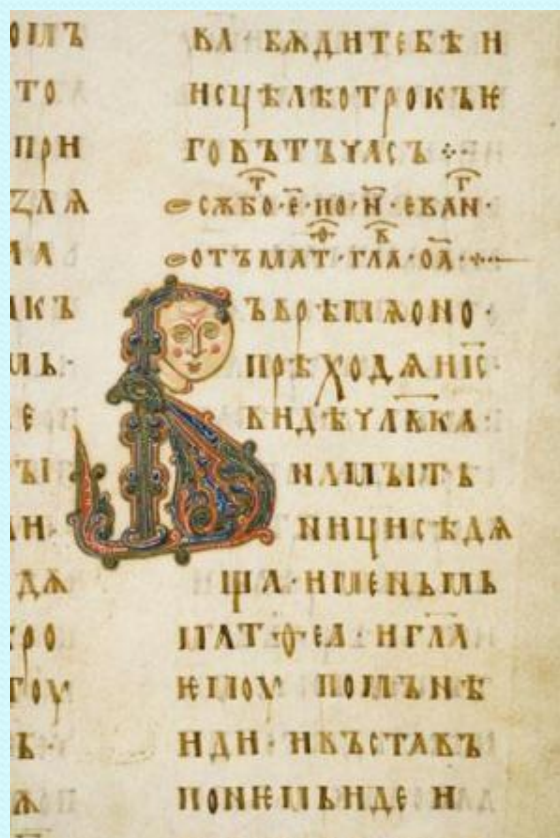 то
при
ла
акъ
е
дѧ
кро
гоу
ка · бѫди тебѣ и
исцѣлѣ отрокъ ѥ
го въ тъ чꙗсъ ⁘
сѫбоⷮ · е҃ · по · н҃ · еванⷢ ·
отъ маⷴт · глаⷡ · ѻ҃а ·
Въ врѣмѧ оно ·
прѣходѧ и҃с ·
видѣ чл҃вка ·
на мꙑтѣ
ници сѣдѧ
ща · именьмь
матѳеа · и гл҃а
ѥмоу по мънѣ
иди · и въставъ
по нѥмь иде и